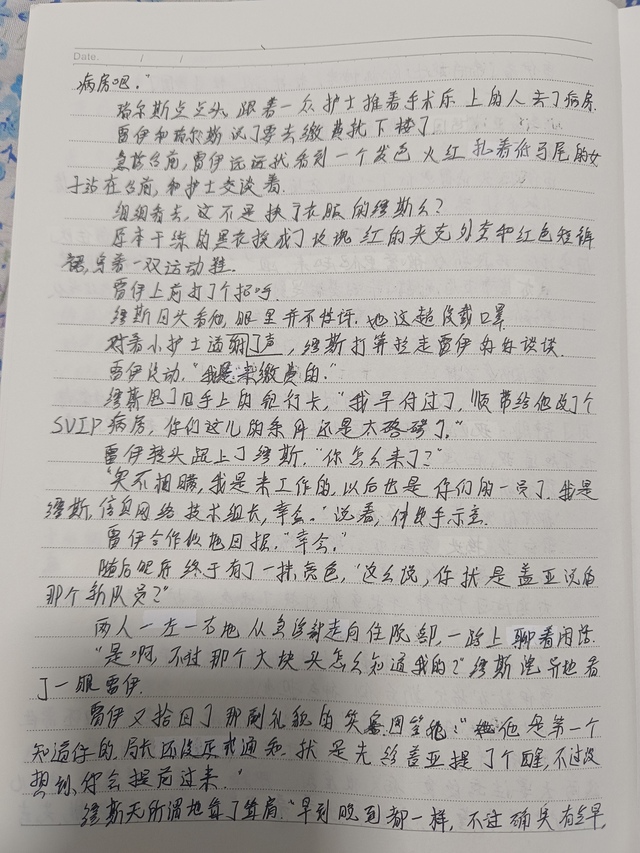 Date.
病房吧。"
瑞尔斯点点头,跟着一众护士推着手术床上的人去了病房.
雷伊和瑞尔斯说了要去缴费就下楼了
急诊台前,雷伊远远就看到一个发色火红扎着低马尾的女
子站在台前,和护士交谈着.
细细看去,这不是换了衣服的缪斯么?
原本干练的黑衣换成了玫瑰红的夹克外套和红色短裤
裙,穿着一双运动鞋.
雷伊上前打了个招呼.
缪斯回头看他,眼里并不惊讶.她这趟没戴口罩
对着小护士道了声,缪斯打算拉走雷伊好好谈谈.
雷伊没动,"我是来缴费的."
缪斯甩了甩手上的银行卡,"我早付过了,顺带给他改了个
SVIP病房,你们这儿的条件还是太磕碜了."
雷伊转头跟上了缪斯."你怎么来了?"
"实不相瞒,我是来工作的,以后也是你们的一员了.我是
缪斯,信息网络技术组长,幸会."说着,伸出手示意.
雷伊合作似地回握."幸会."
随后眼底终于有了一抹亮色,"这么说,你就是盖亚说的
那个新队员?"
两人一左一右地从急诊部走向住院部,一路上聊着闲话.
"是啊,不过那个大块头怎么知道我的?"缪斯诧异地看
了一眼雷伊.
雷伊又拾回了那副礼貌的笑意回答她:"他是第一个
知道你的.局长还没正式通知.就是先给盖亚提了个醒,不过没
想到,你会提前过来."
缪斯无所谓地耸了耸肩."早到晚到都一样,不过确实有些早,